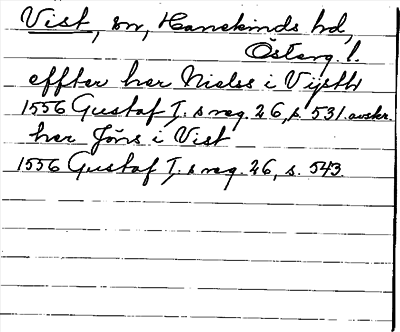 Vist, sn, Hanekinds hd,
Österg. l.
effter her Nielss i Vijsth
1556 Gustaf I:s reg. 26, s. 531. avskr.
her Jöns i Vist
1556 Gustaf I:s reg. 26, s. 543.